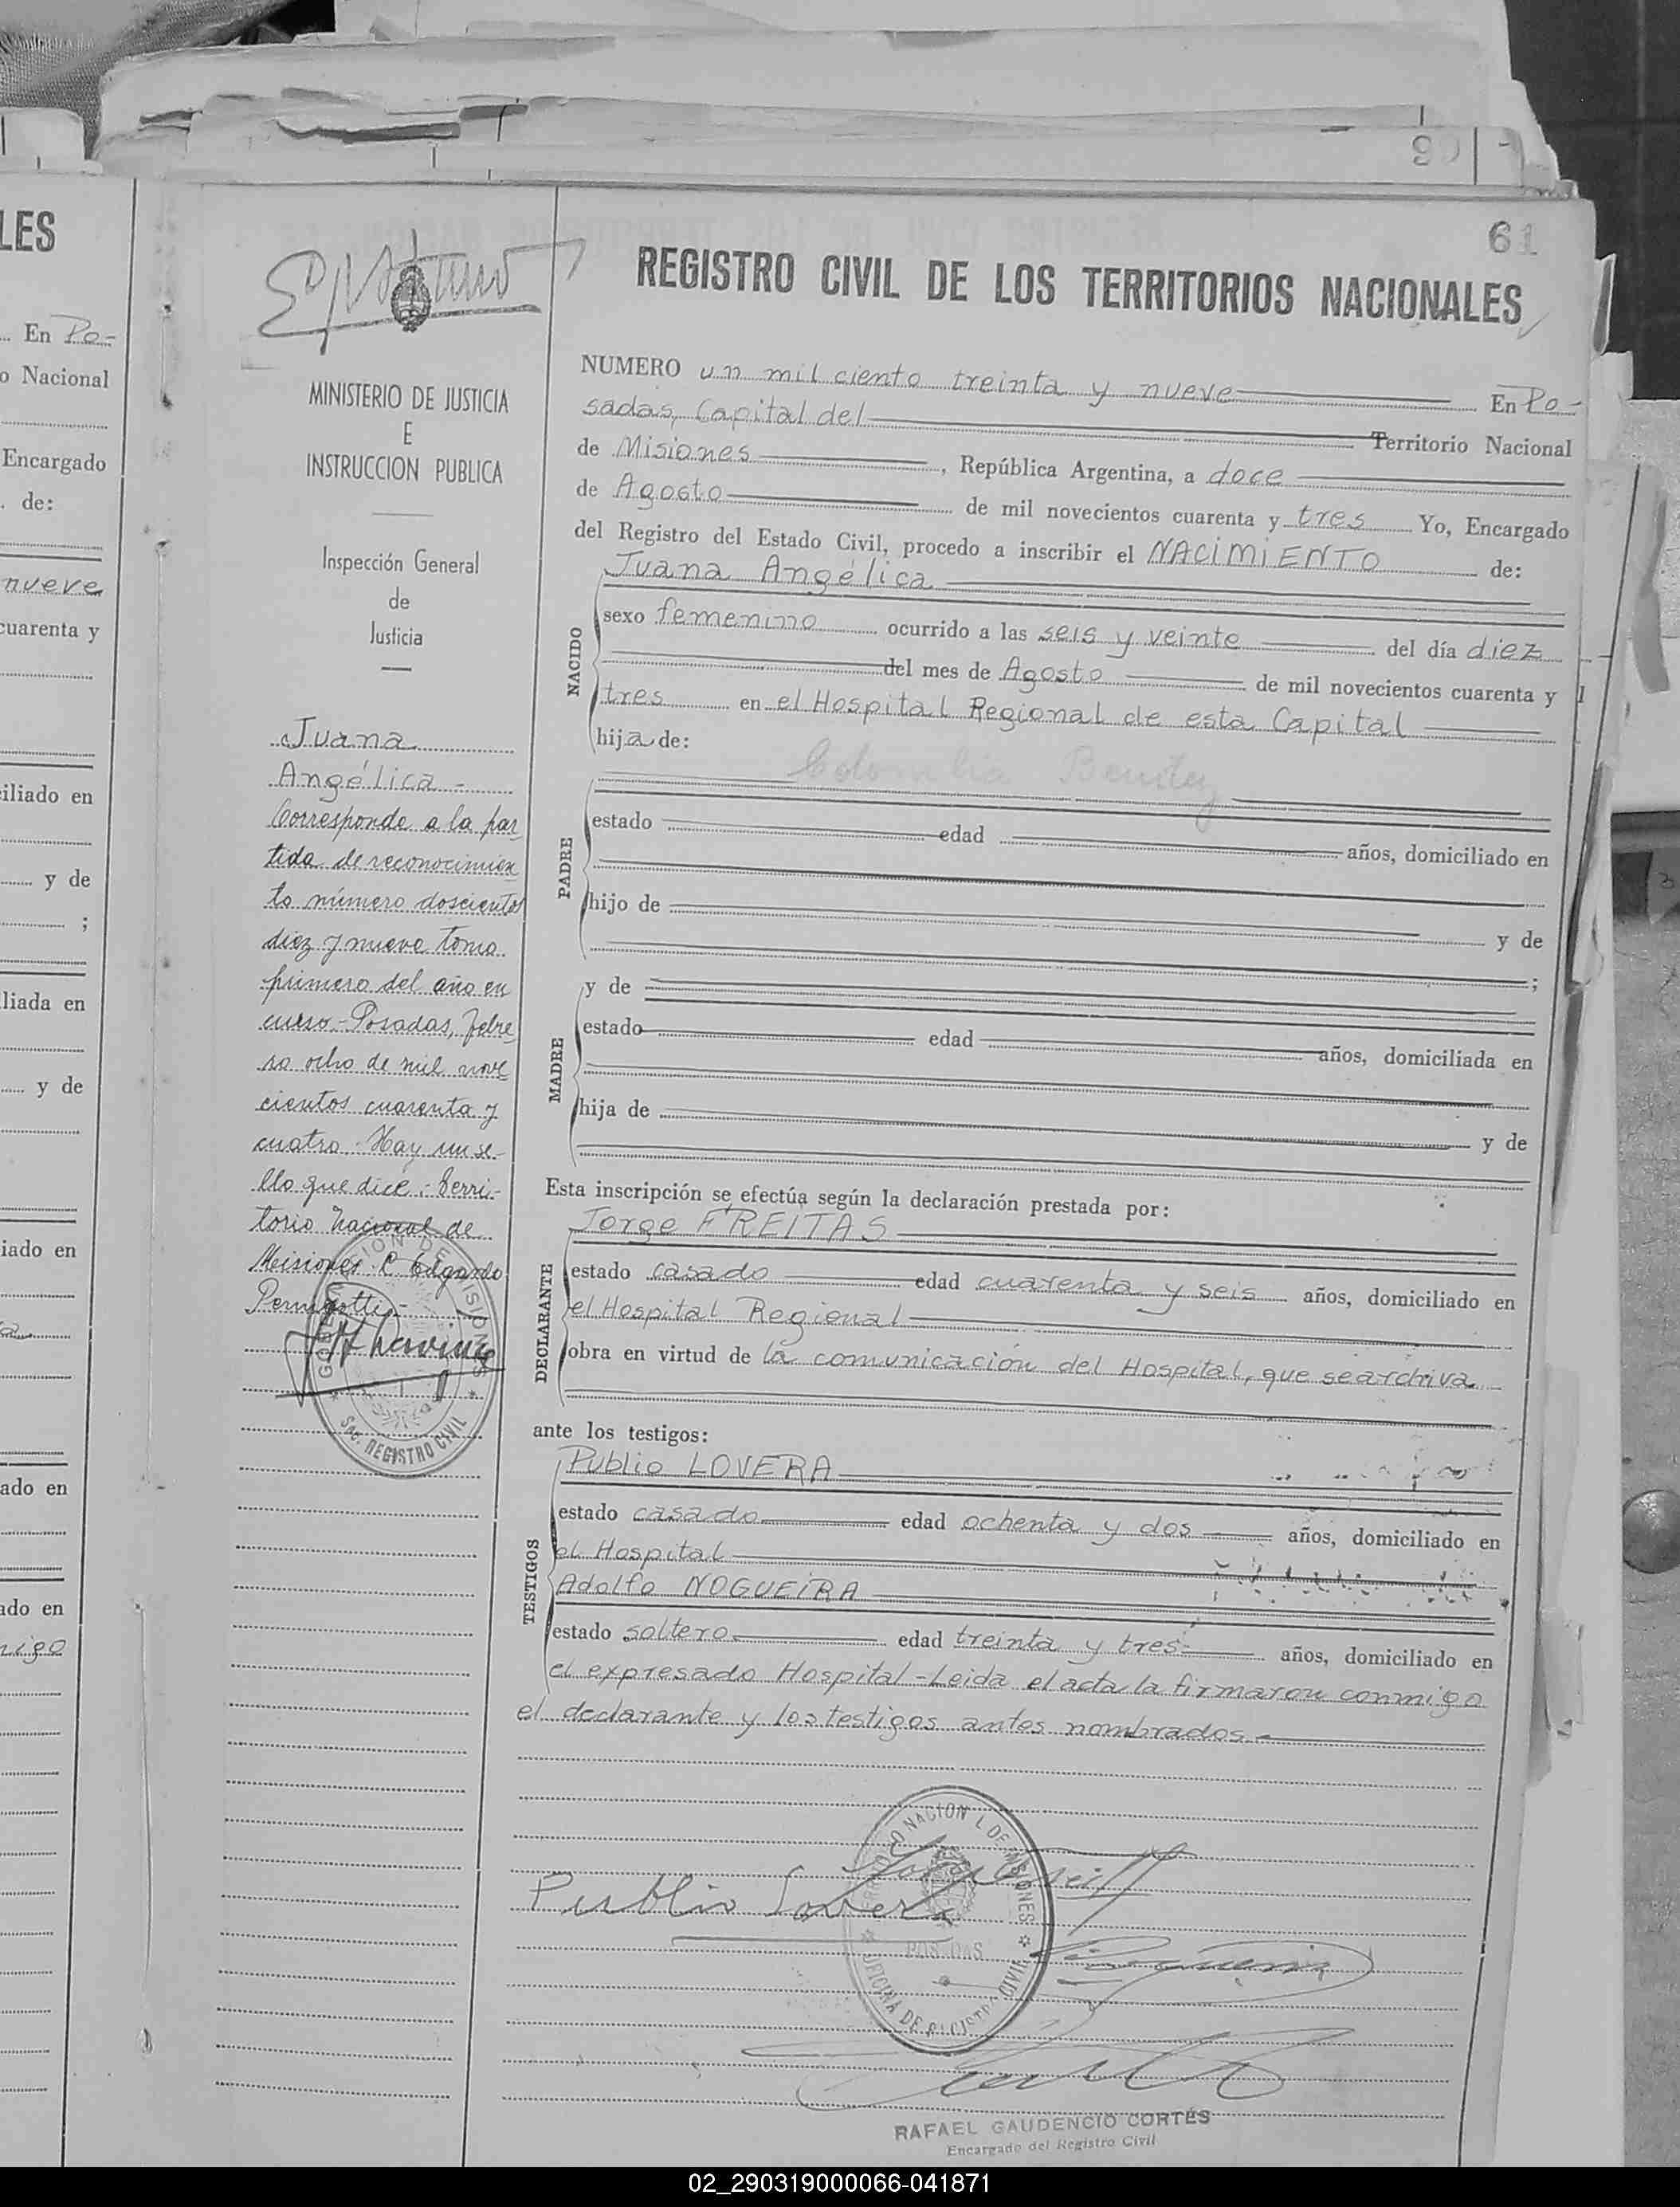 LES
.. En Po-
o Nacional
Encargado
. de:
nueve
cuarenta y
iliado en
y de
;
liada en
y de
iado en
ado en
ado en
migo
90
61
REGISTRO CIVIL DE LOS TERRITORIOS NACIONALES
MINISTERIO DE JUSTICIA
E
INSTRUCCION PUBLICA
Inspección General
de
Justicia
Juana
Angélica -
Corresponde a la par
tida de reconocimien
to número doscientos
diez y nueve tomo
primero del año en
curso.- Posadas, febre
ro ocho de mil nove
cientos cuarenta y
cuatro.- Hay un se-
llo que dice:- Terri-
torio Nacional de
Misiones. C. Edgardo
Pernigotti.-
GOBERNACION DE MISIONES
Sec. REGISTRO CIVIL
NUMERO un mil ciento treinta y nueve En Po-
sadas, Capital del Territorio Nacional
de Misiones, República Argentina, a doce
de Agosto de mil novecientos cuarenta y tres Yo, Encargado
del Registro del Estado Civil, procedo a inscribir el NACIMIENTO de:
Juana Angélica
NACIDO
sexo femenino ocurrido a las seis y veinte del día diez
del mes de Agosto de mil novecientos cuarenta y
tres en el Hospital Regional de esta Capital
hija de:
Colombia Benitez
PADRE
estado edad años, domiciliado en
hijo de
y de
;
MADRE
y de
estado edad años, domiciliada en
hija de
y de
Esta inscripción se efectúa según la declaración prestada por:
Jorge FREITAS
DECLARANTE
estado casado edad cuarenta y seis años, domiciliado en
el Hospital Regional
obra en virtud de la comunicación del Hospital, que se archiva
ante los testigos:
Publio LOVERA
TESTIGOS
estado casado edad ochenta y dos años, domiciliado en
el Hospital
Adolfo NOGUEIRA
estado soltero edad treinta y tres años, domiciliado en
el expresado Hospital-Leida el acta la firmaron conmigo
el declarante y los testigos antes nombrados.-
Publio Lovera
TERRITORIO NACIONAL DE MISIONES
POSADAS
OFICINA DE REGISTRO CIVIL
RAFAEL GAUDENCIO CORTÉS
Encargado del Registro Civil
02_290319000066-041871